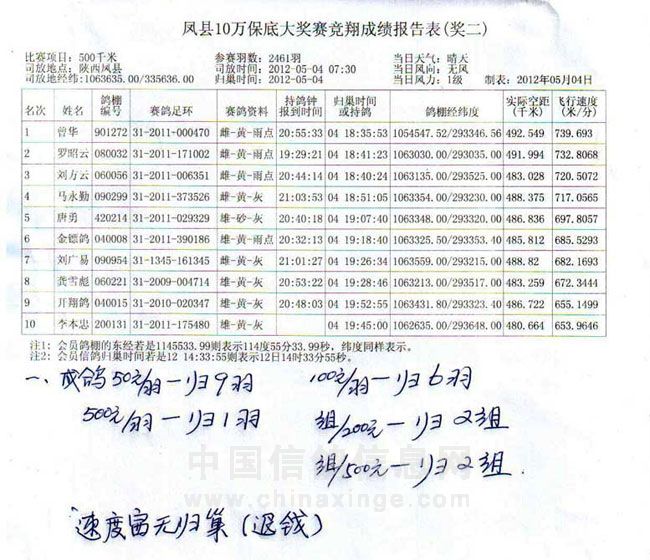 凤县10万保底大奖赛竞翔成绩报告表(奖二)
比赛项目：500千米 参赛羽数：2461羽 当日天气：晴天
司放地点：陕西凤县 司放时间：2012-05-04 07:30 当日风向：无风
司放地经纬：1063635.00/335636.00 归巢时间：2012-05-04 当日风力：1级 制表：2012年05月04日
名次 姓名 鸽棚编号 赛鸽足环 赛鸽资料 持鸽钟报到时间 归巢时间或持鸽 鸽棚经纬度 实际空距(千米) 飞行速度(米/分)
1 曾华 901272 31-2011-000470 雌-黄-雨点 20:55:33 04 18:35:53 1054547.52/293346.56 492.549 739.693
2 罗昭云 080032 31-2011-171002 雌-黄-雨点 19:29:21 04 18:41:23 1063030.00/293035.00 491.994 732.8068
3 刘方云 060056 31-2011-006351 雌-黄-雨点 20:44:14 04 18:40:24 1063135.00/293525.00 483.028 720.5072
4 马永勤 090299 31-2011-373526 雌-黄-灰 21:03:53 04 18:51:05 1063354.00/293230.00 488.375 717.0565
5 唐勇 420214 31-2011-029329 雄-砂-灰 20:40:18 04 19:07:40 1063348.00/293320.00 486.836 697.8057
6 金镖鸽 040008 31-2011-390186 雌-黄-雨点 20:32:13 04 19:18:40 1063325.50/293353.40 485.812 685.5293
7 刘广易 090954 31-1345-161345 雌-黄-灰 21:01:27 04 19:26:34 1063559.00/293215.00 488.82 682.1693
8 龚雪彪 060221 31-2009-004714 雄-黄-灰 20:53:22 04 19:28:46 1063213.00/293517.00 483.259 672.3444
9 开翔鸽 040015 31-2010-020347 雄-黄-灰 20:48:03 04 19:52:55 1063431.80/293323.40 486.722 655.1499
10 李本忠 200131 31-2011-175480 雄-黄-灰 04 19:45:00 1062635.00/293648.00 480.664 653.9646
注1：会员鸽棚的东经若是1145533.99则表示114度55分33.99秒，纬度同样表示。
注2：会员信鸽归巢时间若是12 14:33:55则表示12日14时33分55秒。
一、成鸽50元/羽一归9羽 100元/羽一归6羽
500元/羽一归1羽 组/200元一归2组
组/500元一归2组.
中国信鸽信息网
www.chinaxinge.com
速度富无归巢(退钱)